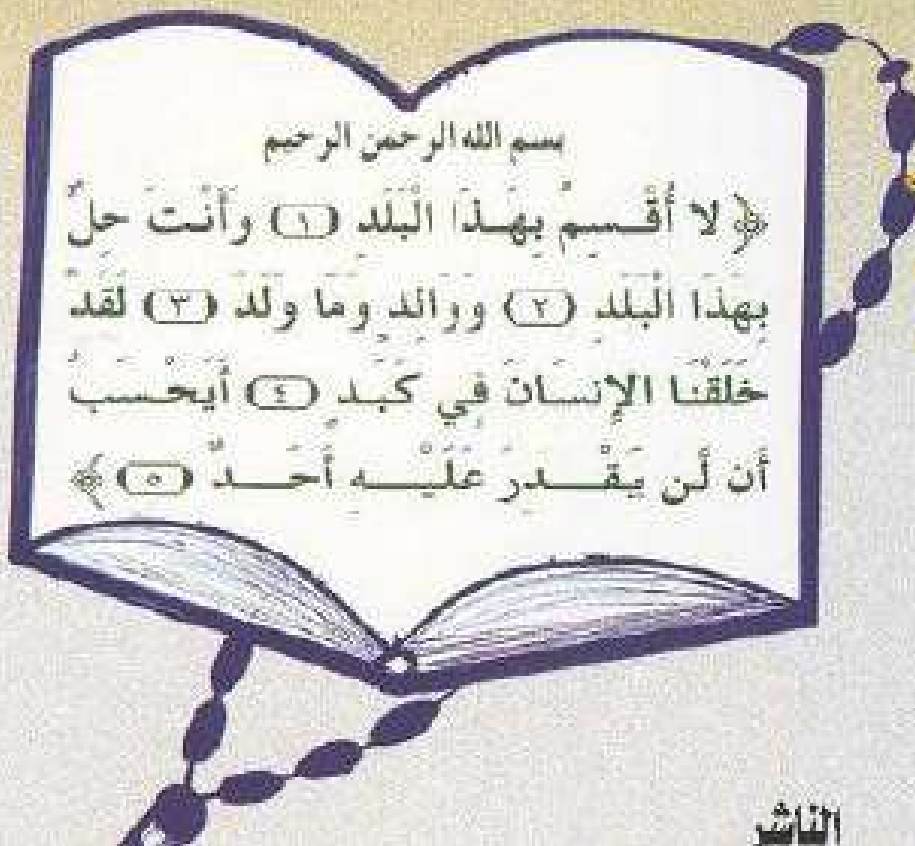 بسم الله الرحمن الرحيم
﴿ لا أُقْسِمُ بِهَذَا الْبَلَدِ (١) وَأَنْتَ حِلٌّ
بِهَذَا الْبَلَدِ (٢) وَوَالِدٍ وَمَا وَلَدَ (٣) لَقَدْ
خَلَقْنَا الإِنسَانَ فِي كَبَدٍ (٤) أَيَحْسَبُ
أَن لَّن يَقْدِرَ عَلَيْهِ أَحَدٌ (٥) ﴾
الناشر